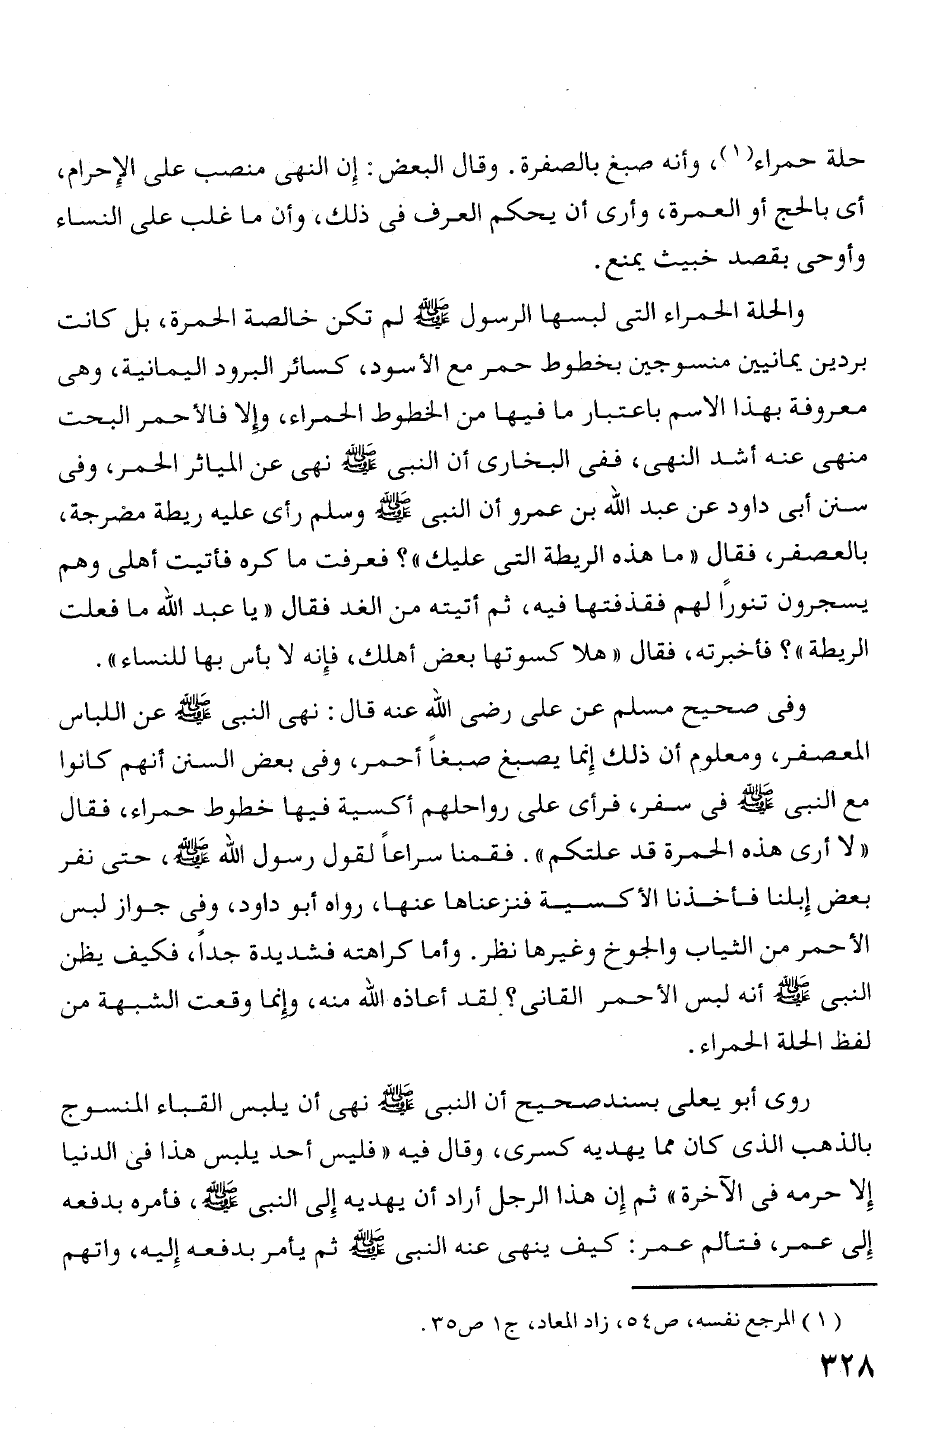 حلة حمراء(١)، وأنه صبغ بالصفرة. وقال البعض: إن النهى منصب على الإحرام،
أى بالحج أو العمرة، وأرى أن يحكم العرف فى ذلك، وأن ما غلب على النساء
وأوحى بقصد خبيث يمنع.
والحلة الحمراء التى لبسها الرسول ﷺ لم تكن خالصة الحمرة، بل كانت
بردين يمانيين منسوجين بخطوط حمر مع الأسود، كسائر البرود اليمانية، وهى
معروفة بهذا الاسم باعتبار ما فيها من الخطوط الحمراء، وإلا فالأحمر البحت
منهى عنه أشد النهى، ففى البخارى أن النبى ﷺ نهى عن المياثر الحمر، وفى
سنن أبى داود عن عبد الله بن عمرو أن النبى ﷺ وسلم رأى عليه ريطة مضرجة،
بالعصفر، فقال «ما هذه الريطة التى عليك»؟ فعرفت ما كره فأتيت أهلى وهم
يسجرون تنوراً لهم فقذفتها فيه، ثم أتيته من الغد فقال «يا عبد الله ما فعلت
الريطة»؟ فأخبرته، فقال «هلا كسوتها بعض أهلك، فإنه لا بأس بها للنساء».
وفى صحيح مسلم عن على رضى الله عنه قال: نهى النبى ﷺ عن اللباس
المعصفر، ومعلوم أن ذلك إنما يصبغ صبغاً أحمر، وفى بعض السنن أنهم كانوا
مع النبى ﷺ فى سفر، فرأى على رواحلهم أكسية فيها خطوط حمراء، فقال
«لا أرى هذه الحمرة قد علتكم». فقمنا سراعاً لقول رسول الله ﷺ، حتى نفر
بعض إبلنا فأخذنا الأكسية فنزعناها عنها، رواه أبو داود، وفى جواز لبس
الأحمر من الثياب والجوخ وغيرها نظر. وأما كراهته فشديدة جداً، فكيف يظن
النبى ﷺ أنه لبس الأحمر القانى؟ لقد أعاذه الله منه، وإنما وقعت الشبهة من
لفظ الحلة الحمراء.
روى أبو يعلى بسندصحيح أن النبى ﷺ نهى أن يلبس القباء المنسوج
بالذهب الذى كان مما يهديه كسرى، وقال فيه «فليس أحد يلبس هذا فى الدنيا
إلا حرمه فى الآخرة» ثم إن هذا الرجل أراد أن يهديه إلى النبى ﷺ، فأمره بدفعه
إلى عمر، فتألم عمر: كيف ينهى عنه النبى ﷺ ثم يأمر بدفعه إليه، واتهم
(١) المرجع نفسه، ص٥٤، زاد المعاد، ج١ ص٣٥.
٣٢٨